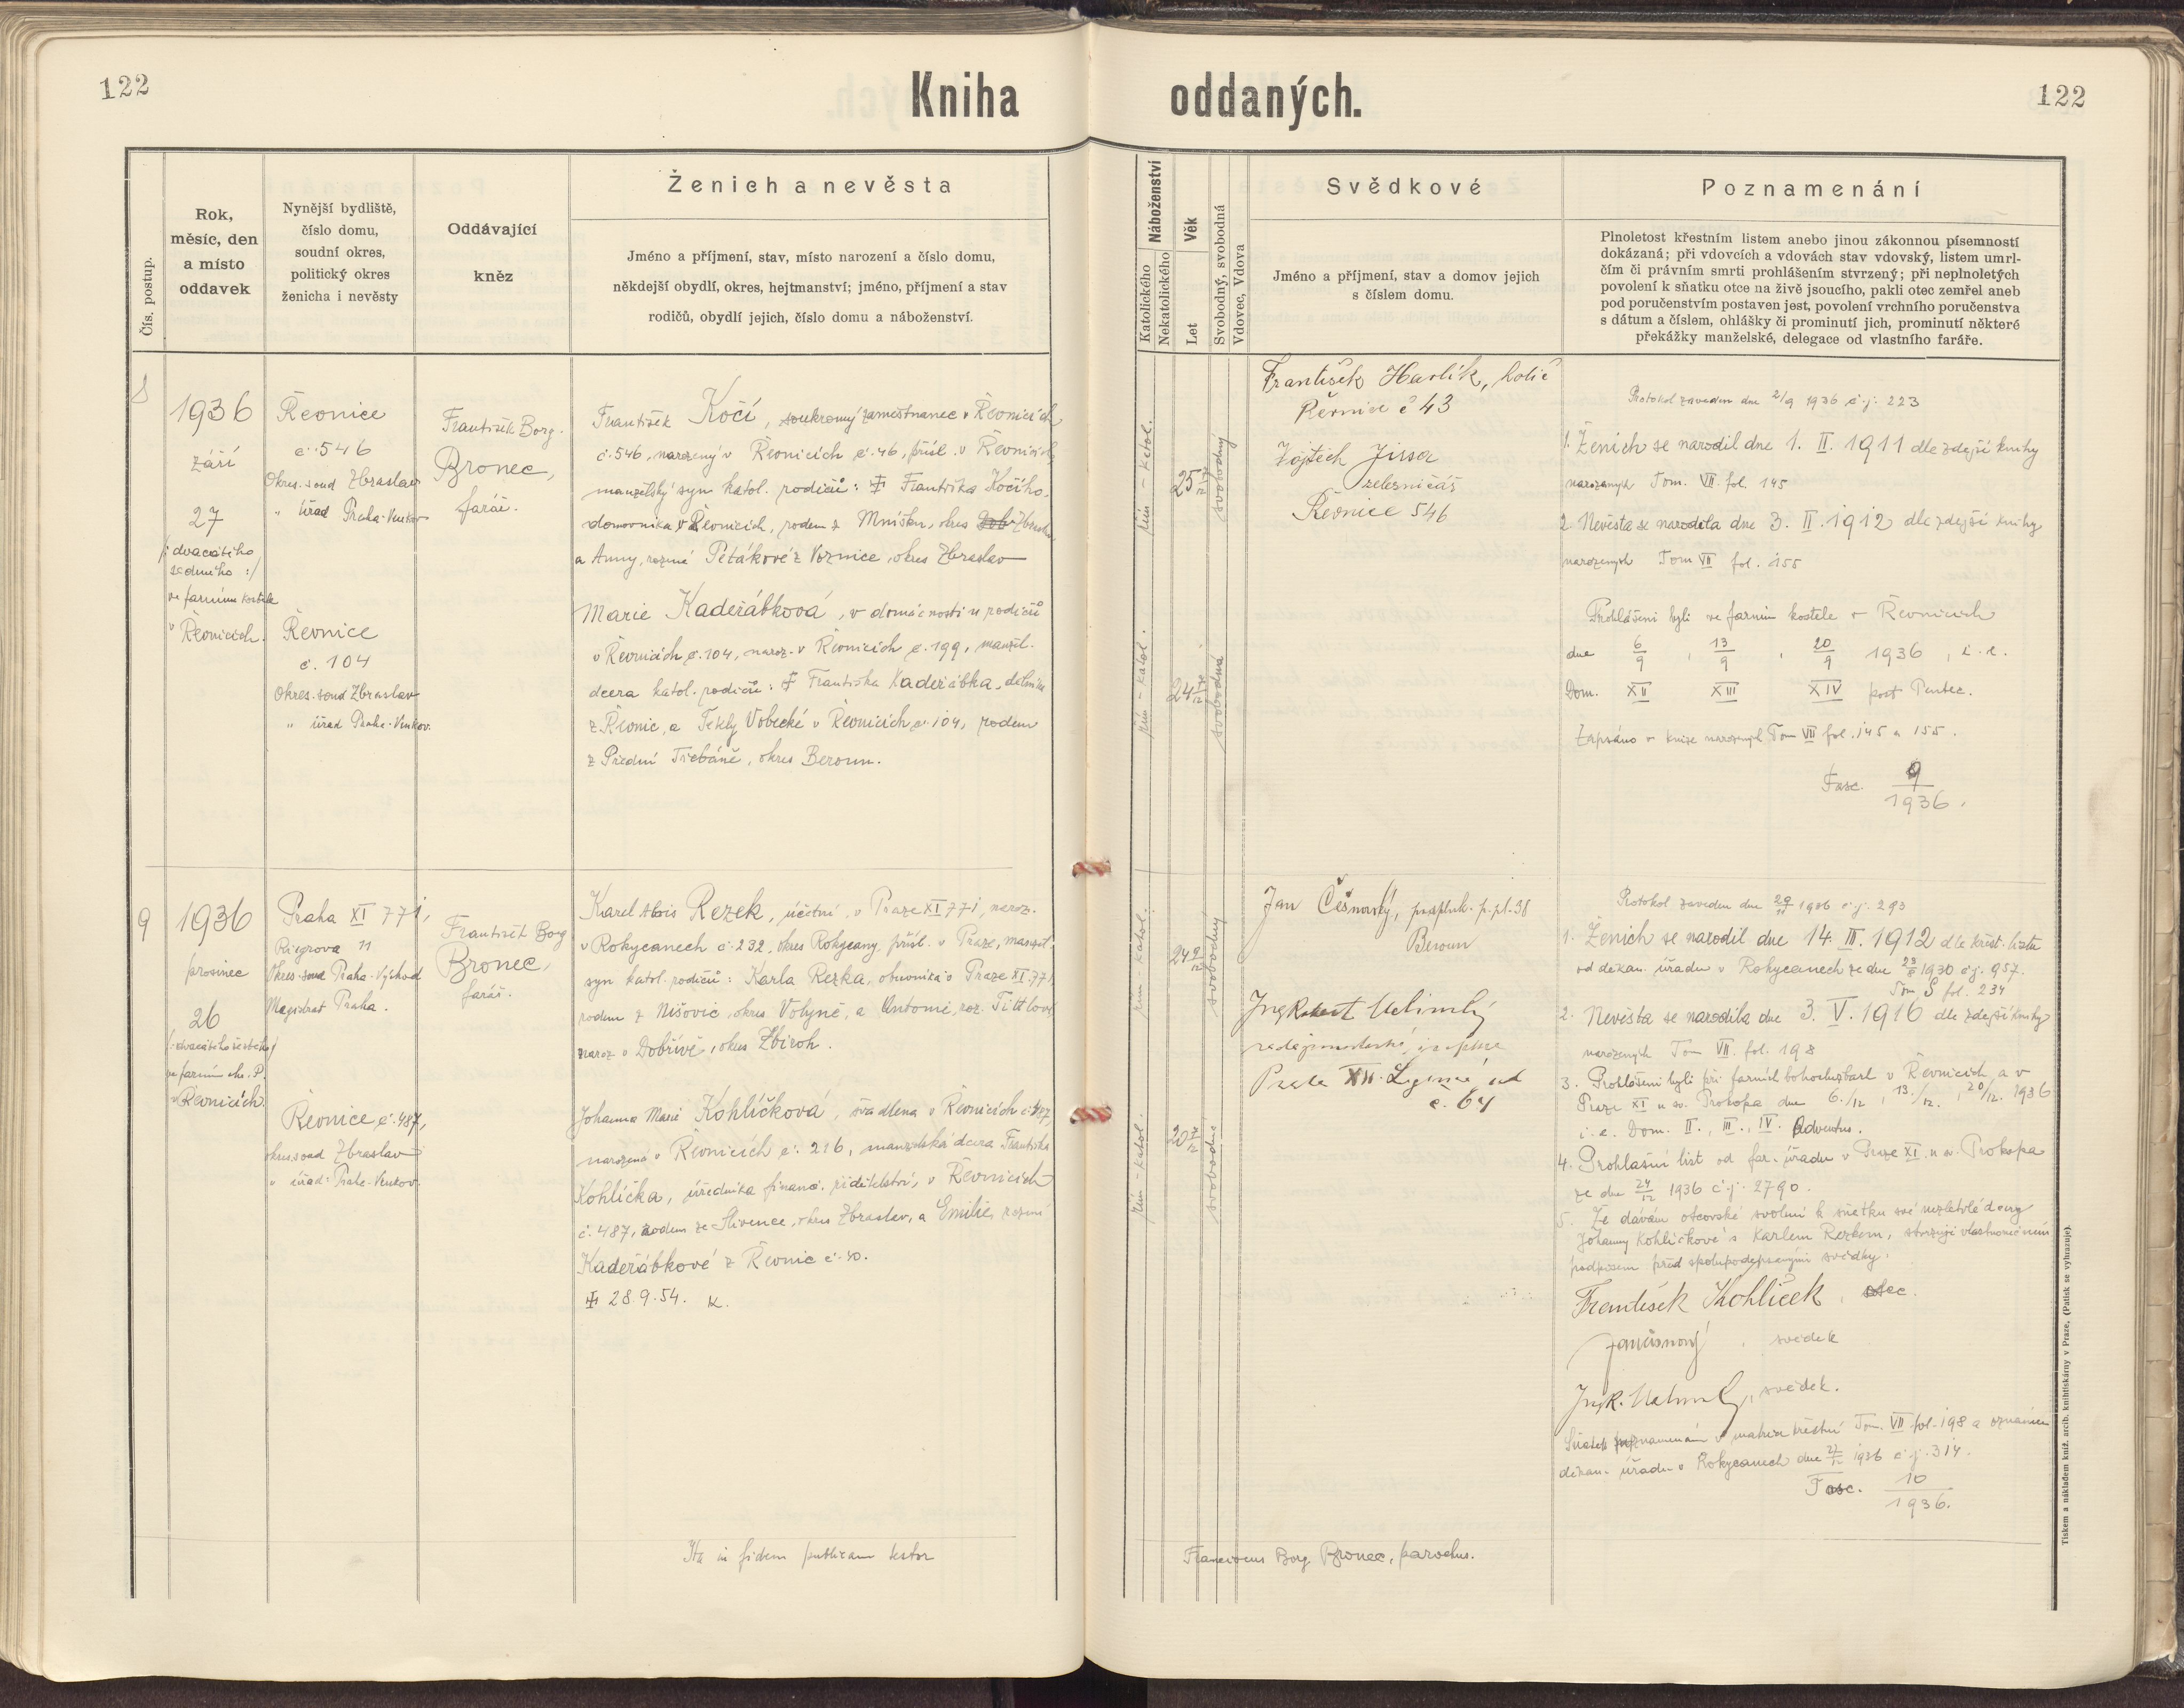 122
Kniha oddaných.
122
Čís. postup.
Rok,
měsíc, den
a místo
oddavek
Nynější bydliště,
číslo domu,
soudní okres,
politický okres
ženicha i nevěsty
Oddávající
kněz
Ženich a nevěsta
Jméno a příjmení, stav, místo narození a číslo domu,
někdejší obydlí, okres, hejtmanství; jméno, příjmení a stav
rodičů, obydlí jejich, číslo domu a náboženství.
Náboženství
Katolického
Nekatolického
Věk
Let
Svobodný, svobodná
Vdovec, Vdova
Svědkové
Jméno a příjmení, stav a domov jejich
s číslem domu.
Poznamenání
Plnoletost křestním listem anebo jinou zákonnou písemností
dokázaná; při vdovcích a vdovách stav vdovský, listem umrl-
čím či právním smrti prohlášením stvrzený; při neplnoletých
povolení k sňatku otce na živě jsoucího, pakli otec zemřel aneb
pod poručenstvím postaven jest, povolení vrchního poručenstva
s dátum a číslem, ohlášky či prominutí jich, prominutí některé
překážky manželské, delegace od vlastního faráře.
8
1936
září
27
/: dvacátého
sedmého :/
ve farním kostele
v Řevnicích.
Řevnice
č. 546
Okres. soud Zbraslav
" úřad Praha-Venkov
Řevnice
č. 104
Okres. soud Zbraslav
" úřad Praha-Venkov.
František Borg.
Bronec,
farář.
František Kočí, soukromý zaměstnanec v Řevnicích
č. 546, narozený v Řevnicích č. 46, přísl. v Řevnicích,
manželský syn katol. rodičů: ‡ Františka Kočího,
domovníka v Řevnicích, rodem z Mníšku, okres Zbraslav
a Anny, rozené Petákové z Voznice, okres Zbraslav
Marie Kadeřábková, v domácnosti u rodičů
v Řevnicích č. 104, naroz. v Řevnicích č. 199, manžel.
dcera katol. rodičů: ‡ Františka Kadeřábka, dělníka
z Řevnic, a Tekly Vobecké v Řevnicích č. 104, rodem
z Přední Třebáně, okres Beroun.
řím - katol.
25
svobodný
řím - katol.
24
svobodná
František Havlík, holič
Řevnice č 43
Vojtěch Jirsa
železničář
Řevnice 546
Protokol zaveden dne 2/9 1936 č. j. 223
1. Ženich se narodil dne 1. II. 1911 dle zdejší knihy
narozených Tom. VII. fol. 145
2. Nevěsta se narodila dne 3. II. 1912 dle zdejší knihy
narozených Tom VII fol. 155
Prohlášeni byli ve farním kostele v Řevnicích
dne 6/9, 13/9, 20/9 1936, i. e.
Dom. XII XIII XIV post Pentec.
Zapsáno v knize narozených Tom VII fol. 145 a 155.
Fasc. 9/1936.
9
1936
prosinec
26
/: dvacátého šestého :/
ve farním chr. P.
v Řevnicích.
Praha XI 771,
Riegrova 11
Okres. soud Praha-Východ
Magistrát Praha.
Řevnice č. 487,
okres. soud Zbraslav
" úřad: Praha-Venkov.
František Borg
Bronec,
farář.
Karel Alois Rezek, účetní, v Praze XI 771, naroz.
v Rokycanech č. 232, okres Rokycany, přísl. v Praze, manžel.
syn katol. rodičů: Karla Rezka, obuvníka v Praze XI 771
rodem z Nišovic, okres Volyně, a Antonie, roz. Tittlové
naroz. v Dobřívě, okres Zbiroh.
Johanna Marie Kohlíčková, švadlena v Řevnicích č. 487,
narozená v Řevnicích č. 216, manželská dcera Františka
Kohlíčka, úředníka financ. ředitelství, v Řevnicích
č. 487, rodem ze Slivence, okres Zbraslav, a Emilie, rozené
Kadeřábkové z Řevnic č. 40.
‡ 28.9.54.
řím - katol.
24 9/12
svobodný
řím - katol.
20 7/12
svobodná
Jan Češnovský, p. pl. 38
Beroun
Ing Robert
Praha XII.
č. 64
Protokol zaveden dne 29/11 1936 č. j. 293
1. Ženich se narodil dne 14. III. 1912 dle křest. listu
od děkan. úřadu v Rokycanech ze dne 23/8 1930 č. j. 957.
Tom S fol. 234
2. Nevěsta se narodila dne 3. V. 1916 dle zdejší knihy
narozených Tom VII. fol. 198
3. Prohlášeni byli při farních bohoslužbách v Řevnicích a v
Praze XI u sv. Prokopa dne 6./12, 13./12., 20/12. 1936
i. e. Dom. II., III., IV. Adventus.
4. Prohlašní list od far. úřadu v Praze XI. u sv. Prokopa
ze dne 24/12 1936 č. j. 2790.
5. Že dávám otcovské svolení k sňatku své nezletilé dcery
Johanny Kohlíčkové s Karlem Rezkem, stvrzuji vlastnoručním
podpisem před spolupodepsanými svědky.
František Kohlíček, otec.
svědek
Ing R. svědek.
Sňatek poznamenán v matrice křestní Tom. VII fol. 198 a oznámen
děkan. úřadu v Rokycanech dne 27/12 1936 č. j. 314.
Fasc. 10/1936.
Ita in fidem publicam testor
Franciscus Borg. Bronec, parochus.
Tiskem a nákladem kníž. arcib. knihtiskárny v Praze. (Patisk se vyhrazuje).